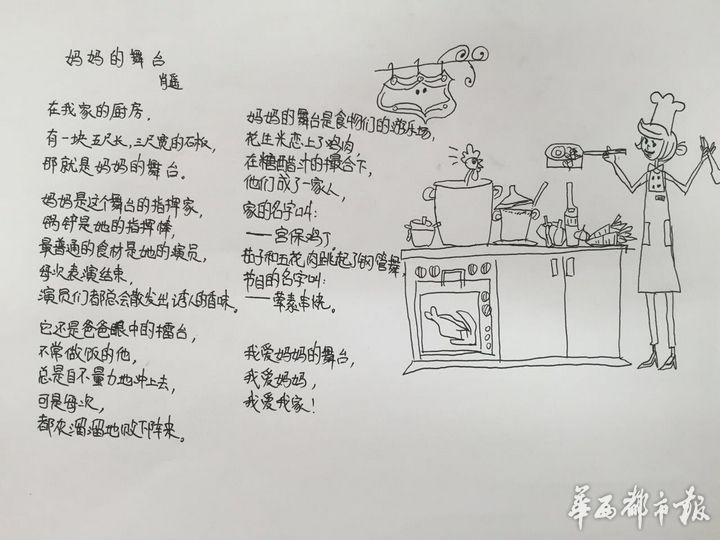 妈妈的舞台
肖遥
在我家的厨房，
有一块五尺长，三尺宽的石板，
那就是妈妈的舞台。
妈妈是这个舞台的指挥家，
锅铲是她的指挥棒，
最普通的食材是她的演员，
每次表演结束，
演员们都总会散发出诱人的香味。
它还是爸爸眼中的擂台，
不常做饭的他，
总是自不量力地冲上去，
可是每次，
都灰溜溜地败下阵来。
妈妈的舞台是食物们的游乐场，
花生米恋上了鸡肉
在糖醋汁的撮合下，
他们成了一家人，
家的名字叫：
——宫保鸡丁，
茄子和五花肉跳起了钢管舞，
节目的名字叫：
——荤素串烧。
我爱妈妈的舞台，
我爱妈妈，
我爱我家！
华西都市报